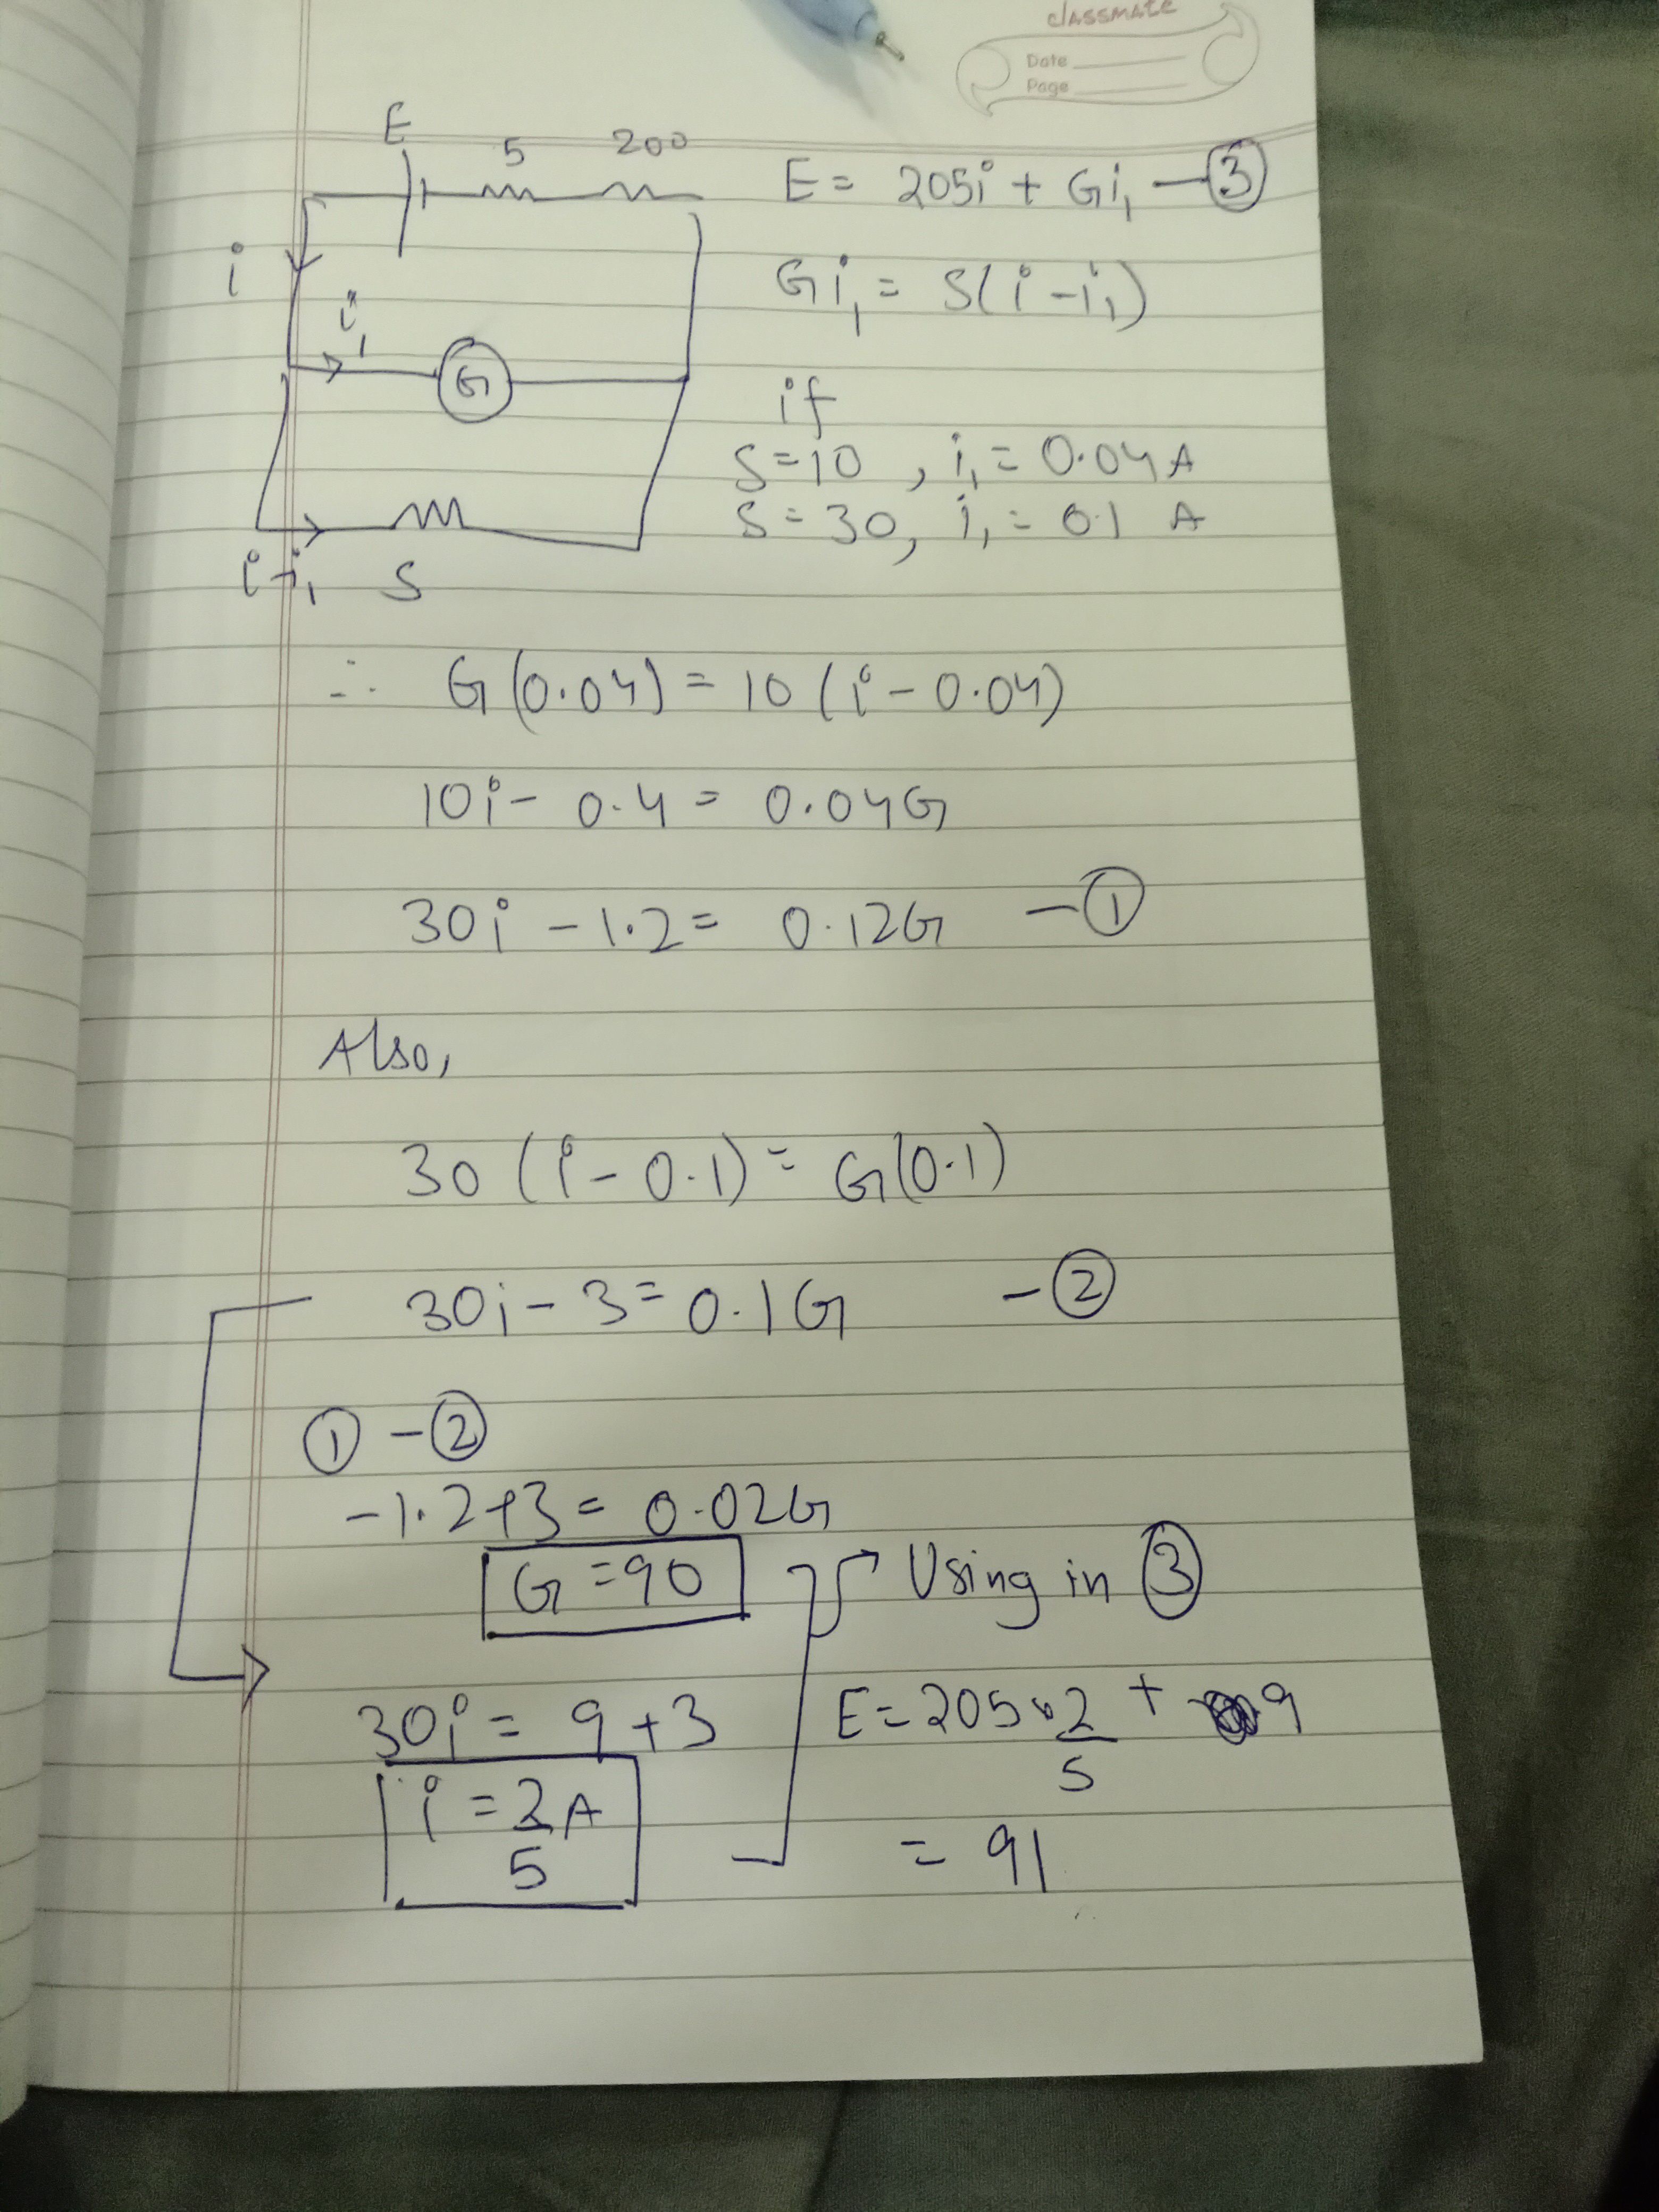 classmate
Date
Page
E
5 200
E = 205i + Gi₁ — ③
i
Gi₁ = S(i - i₁)
i₁
G
if
S = 10 , i₁ = 0.04 A
S = 30, i₁ = 0.1 A
i-i₁ S
∴ G(0.04) = 10 (i - 0.04)
10i - 0.4 = 0.04G
30i - 1.2 = 0.12G — ①
Also,
30 (i - 0.1) = G(0.1)
30i - 3 = 0.1G — ②
① - ②
-1.2+3 = 0.02G
G = 90
Using in ③
30i = 9 + 3
E = 205 · 2/5 + 9
i = 2/5 A
= 91